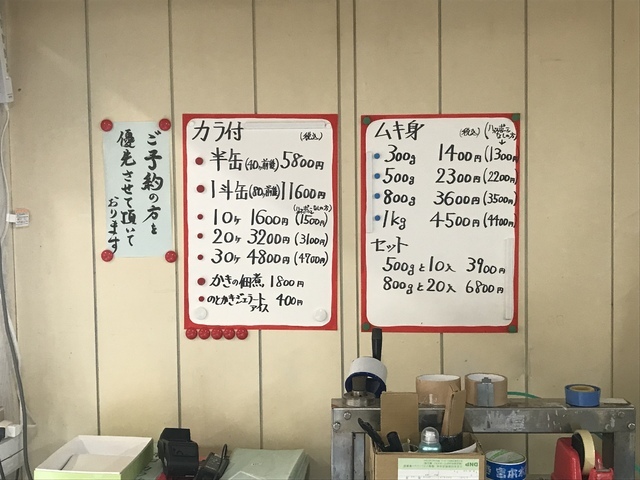 ご予約の方と
優先させて頂いて
おります
カラ付 (税込)
半缶(40ヶ前後) 5800円
1斗缶(80ヶ前後) 11600円
(ハッポーなしの方)
10ヶ 1600円 (1500円)
20ヶ 3200円 (3100円)
30ヶ 4800円 (4700円)
かきの佃煮 1800円
のとかきジェラート 400円
アイス
ムキ身 (税込) (ハッポーなしの方)
300g 1400円 (1300円)
500g 2300円 (2200円)
800g 3600円 (3500円)
1kg 4500円 (4400円)
セット
500gと10入 3900円
800gと20入 6800円
DNP